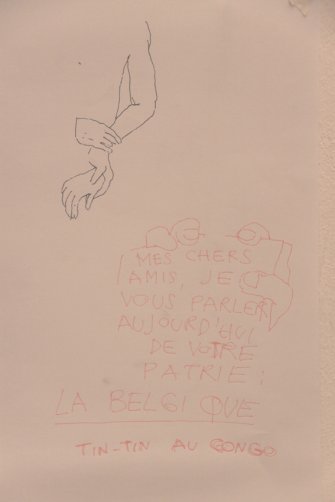 MES CHERS
AMIS, JE
VOUS PARLER
AUJOURD'HUI
DE VOTRE
PATRIE :
LA BELGIQUE
TIN-TIN AU CONGO